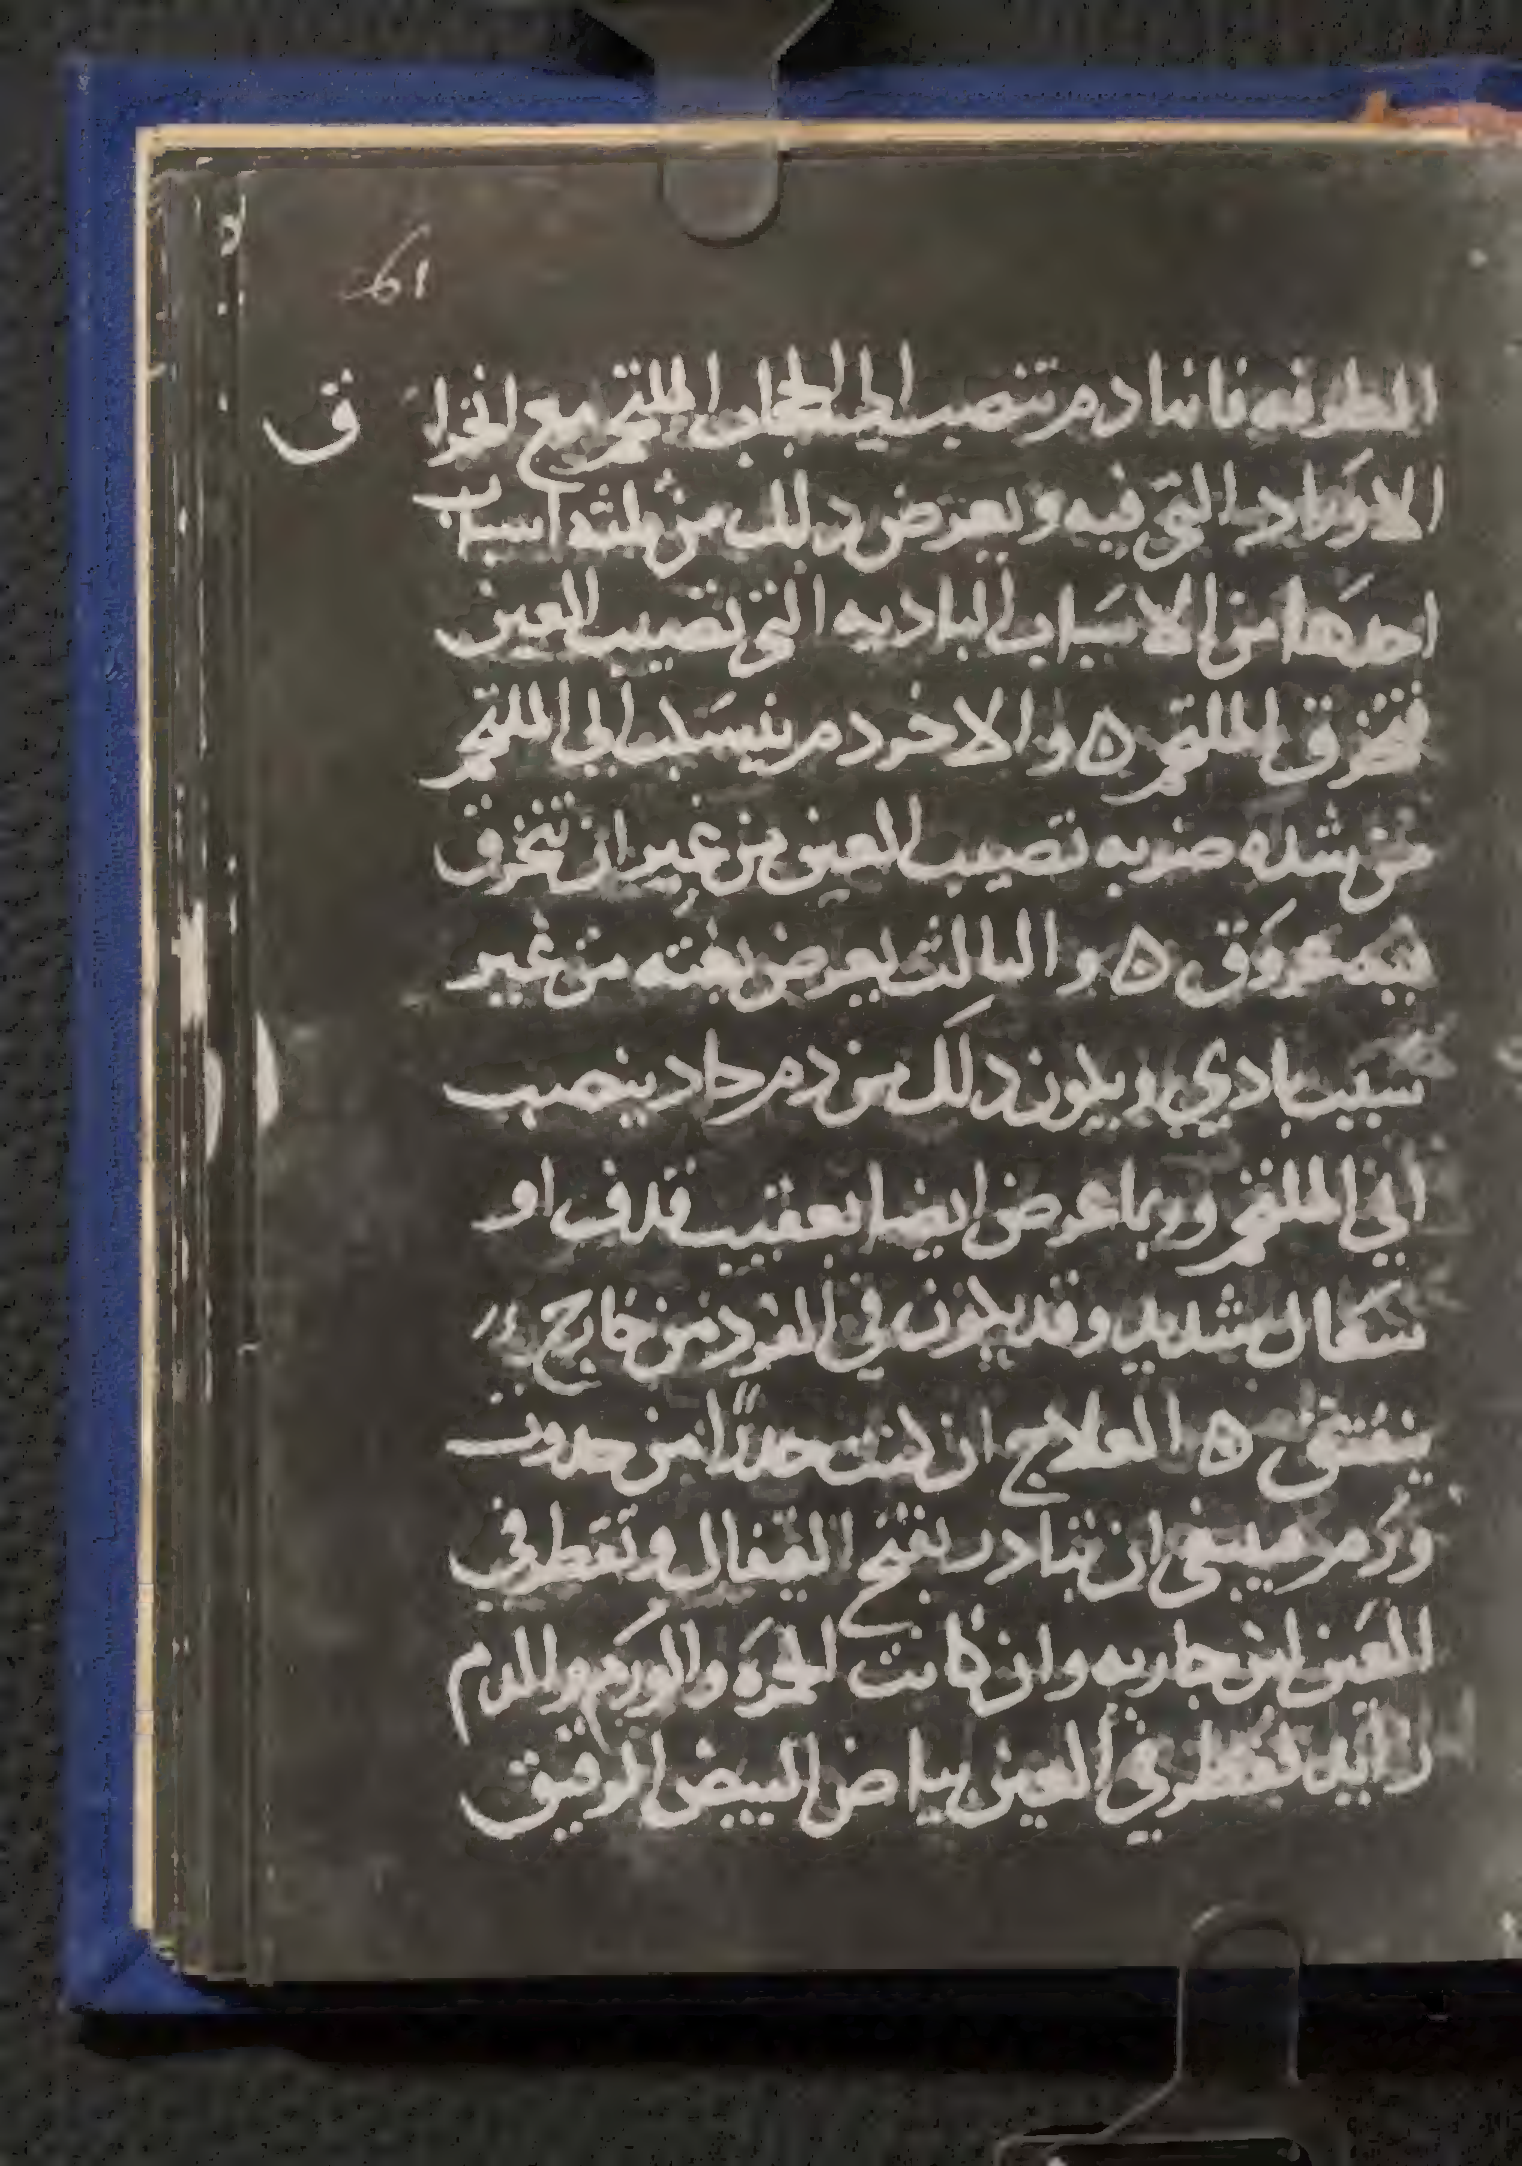 61
الطرفه فانها دم تنصب الى الحجاب الملتحم مع انخرا ق
الاوراد التي فيه ويعرض ذلك من ثلثه اسباب
احدها من الاسباب الباديه التي تصيب العين
فتخرق الملتحم ه والاخر دم ينسكب الى الملتحم
من شده ضربه تصيب العين من غير ان تنخرق
فيه عروق ه والثالث يعرض بغته من غير
سبب بادي ويكون ذلك من دم حاد ينصب
الى الملتحم وربما عرض ايضا بعقيب قذف او
سعال شديد وقد يكون في الفرد من خارج
ه العلاج ان كنت حذرًا من حدوث
ورم فينبغي ان تبادر بفتح القيفال وتقطر في
العين لبن جاريه وان كانت الحمره والورم والدم
زايد فقطر في العين بياض البيض الرقيق